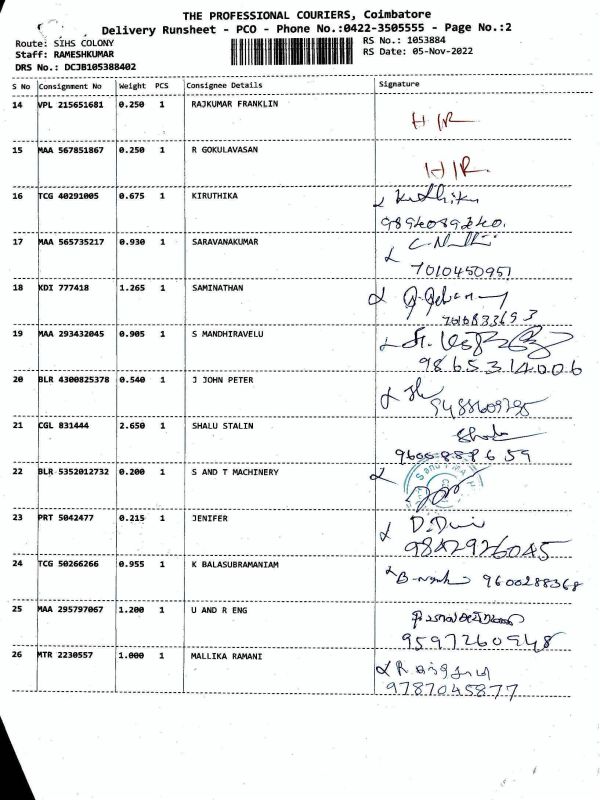 THE PROFESSIONAL COURIERS, Coimbatore
Delivery Runsheet - PCO - Phone No.:0422-3505555 - Page No.:2
Route: SIHS COLONY
RS No.: 1053884
Staff: RAMESHKUMAR
RS Date: 05-Nov-2022
DRS No.: DCJB105388402
S No Consignment No Weight PCS Consignee Details Signature
14 VPL 215651681 0.250 1 RAJKUMAR FRANKLIN
H I R
15 MAA 567851867 0.250 1 R GOKULAVASAN
H I R.
16 TCG 40291005 0.675 1 KIRUTHIKA
9894089240.
17 MAA 565735217 0.930 1 SARAVANAKUMAR
7010450951
18 KDI 777418 1.265 1 SAMINATHAN
19 MAA 293432045 0.905 1 S MANDHIRAVELU
9865314006
20 BLR 4300825378 0.540 1 J JOHN PETER
21 CGL 831444 2.650 1 SHALU STALIN
22 BLR 5352012732 0.200 1 S AND T MACHINERY
23 PRT 5042477 0.215 1 JENIFER
9842926045
24 TCG 50266266 0.955 1 K BALASUBRAMANIAM
9600288368
25 MAA 295797067 1.200 1 U AND R ENG
9597260948
26 MTR 2230557 1.000 1 MALLIKA RAMANI
9787045877